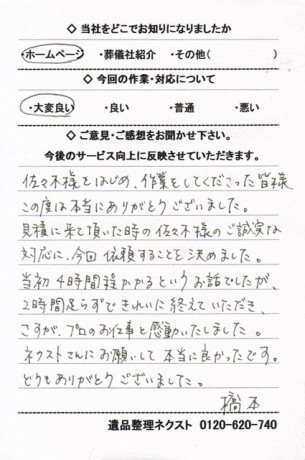 ◇ 当社をどこでお知りになりましたか
・ホームページ ・葬儀社紹介 ・その他( )
◇ 今回の作業・対応について
・大変良い ・良い ・普通 ・悪い
◇ ご意見・ご感想をお聞かせ下さい。
今後のサービス向上に反映させていただきます。
佐々木様をはじめ、作業をしてくださった皆様
この度は本当にありがとうございました。
見積に来て頂いた時の佐々木様のご誠実な
対応に、今回依頼することを決めました。
当初4時間程かかるというお話でしたが、
2時間足らずできれいに終えていただき、
さすが、プロのお仕事と感動いたしました。
ネクストさんにお願いして本当に良かったです。
どうもありがとうございました。
橋本
遺品整理ネクスト 0120-620-740